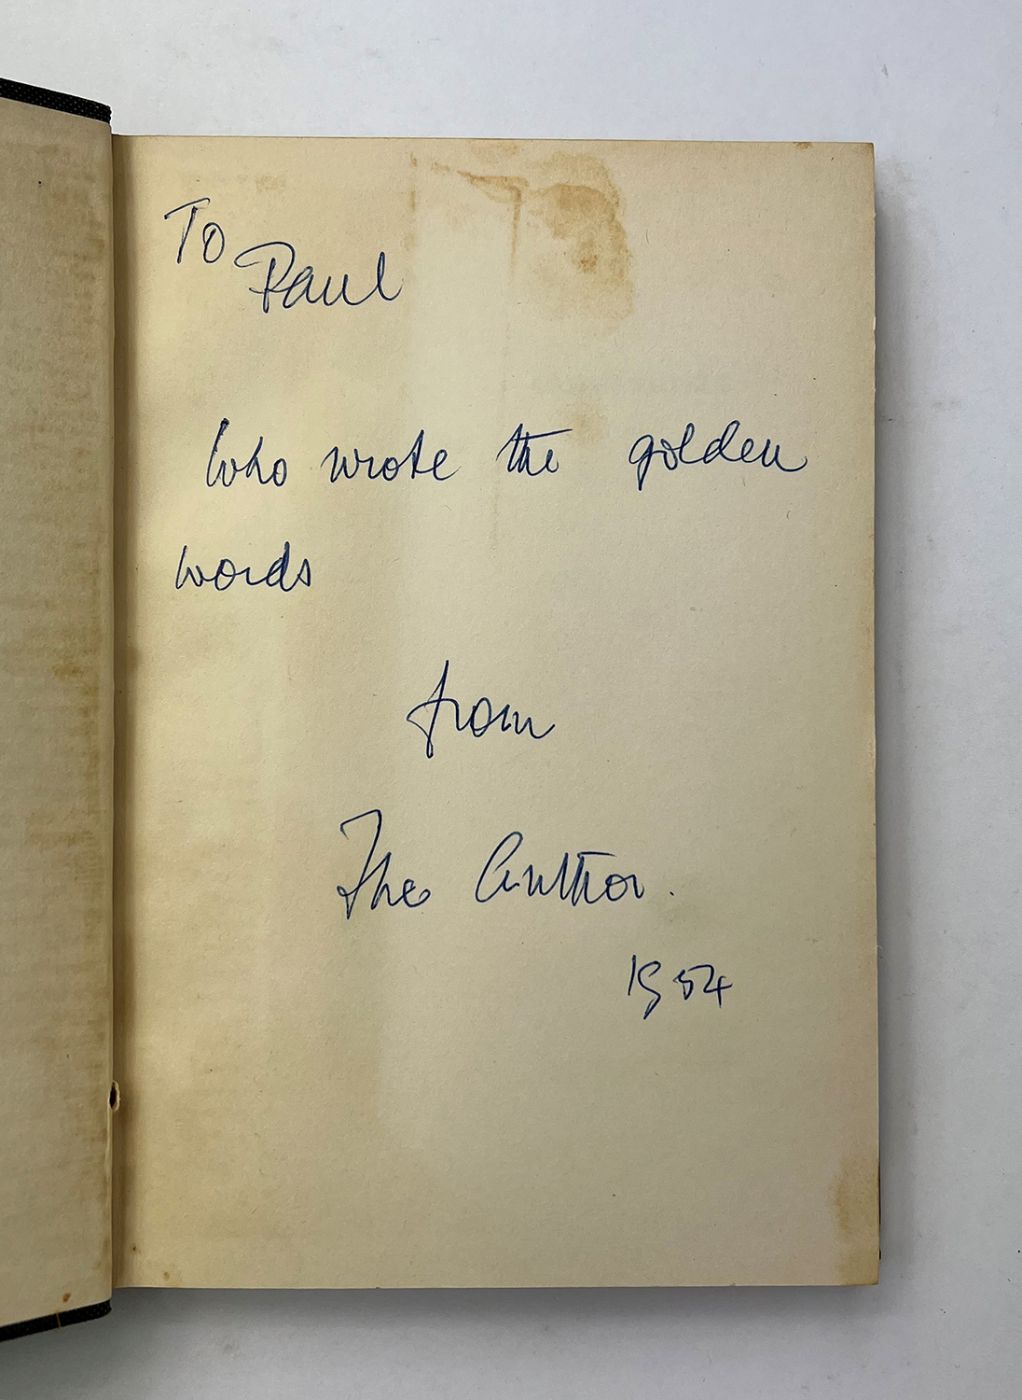 To
Paul
who wrote the golden
words
from
The Author.
1954